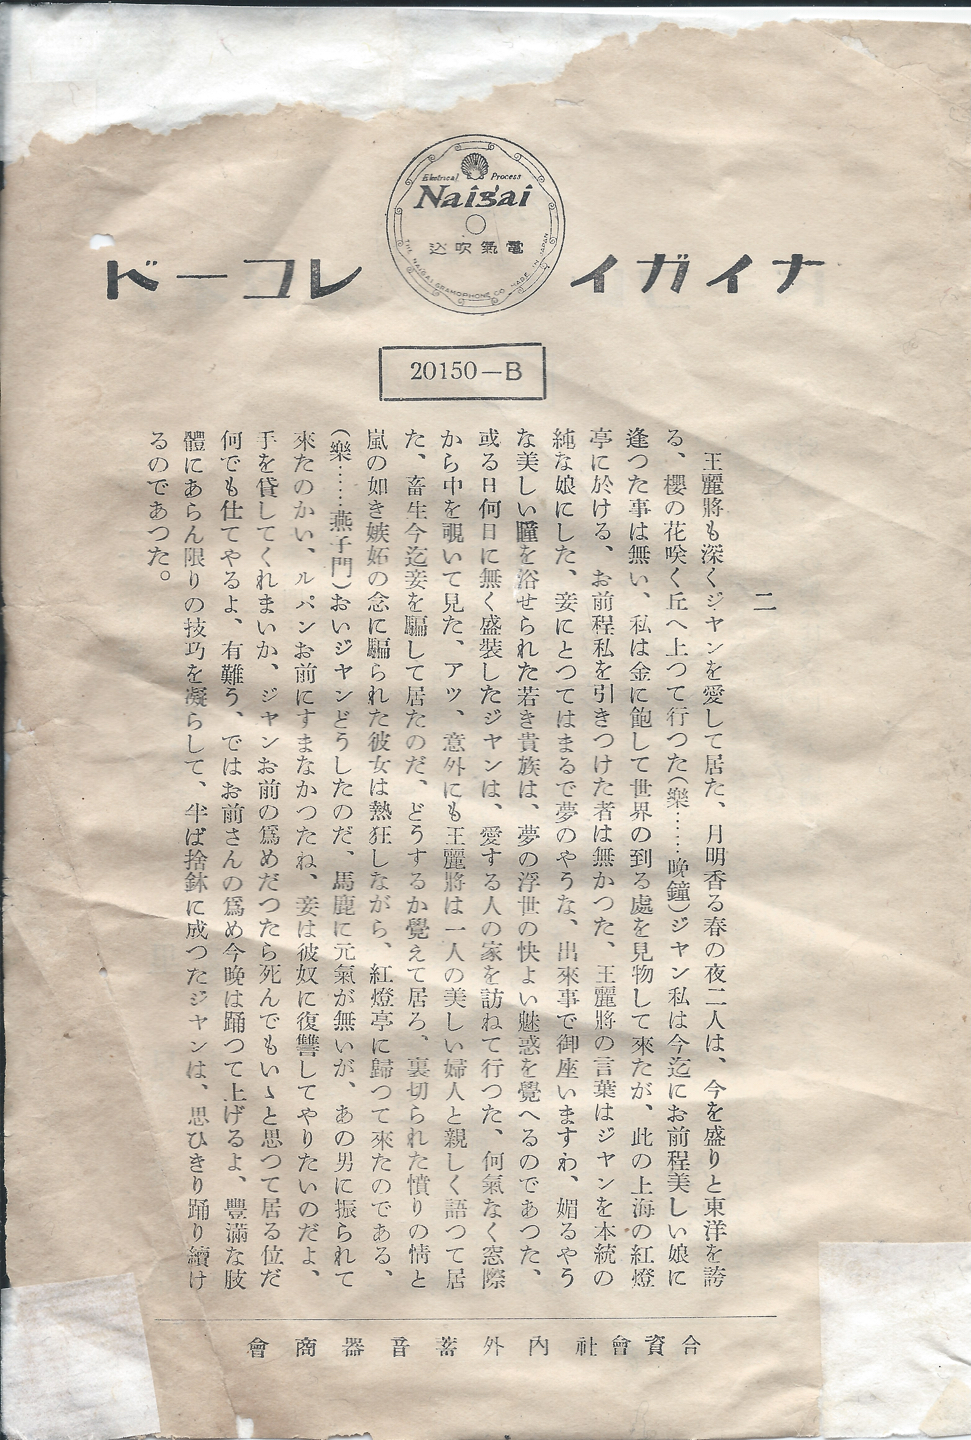 ナイガイ レコード
Electrical Process
Naigai
電氣吹込
THE NAIGAI GRAMOPHONE CO. MADE IN JAPAN
20150—B
二
王麗將も深くジヤンを愛して居た、月明香る春の夜二人は、今を盛りと東洋を誇
る、櫻の花咲く丘へ上つて行つた(樂……晩鐘)ジヤン私は今迄にお前程美しい娘に
逢つた事は無い、私は金に飽して世界の到る處を見物して來たが、此の上海の紅燈
亭に於ける、お前程私を引きつけた者は無かつた、王麗將の言葉はジヤンを本統の
純な娘にした、妾にとつてはまるで夢のやうな、出來事で御座いますわ、媚るやう
な美しい瞳を浴せられた若き貴族は、夢の浮世の快よい魅惑を覺へるのであつた、
或る日何日に無く盛裝したジヤンは、愛する人の家を訪ねて行つた、何氣なく窓際
から中を覗いて見た、アツ、意外にも王麗將は一人の美しい婦人と親しく語つて居
た、畜生今迄妾を騙して居たのだ、どうするか覺えて居ろ、裏切られた憤りの情と
嵐の如き嫉妬の念に騙られた彼女は熱狂しながら、紅燈亭に歸つて來たのである、
(樂……燕子門)おいジヤンどうしたのだ、馬鹿に元氣が無いが、あの男に振られて
來たのかい、ルパンお前にすまなかつたね、妾は彼奴に復讐してやりたいのだよ、
手を貸してくれまいか、ジヤンお前の爲めだつたら死んでもいゝと思つて居る位だ
何でも仕てやるよ、有難う、ではお前さんの爲め今晩は踊つて上げるよ、豐滿な肢
體にあらん限りの技巧を凝らして、半ば捨鉢に成つたジヤンは、思ひきり踊り續け
るのであつた。
合資會社內外蓄音器商會